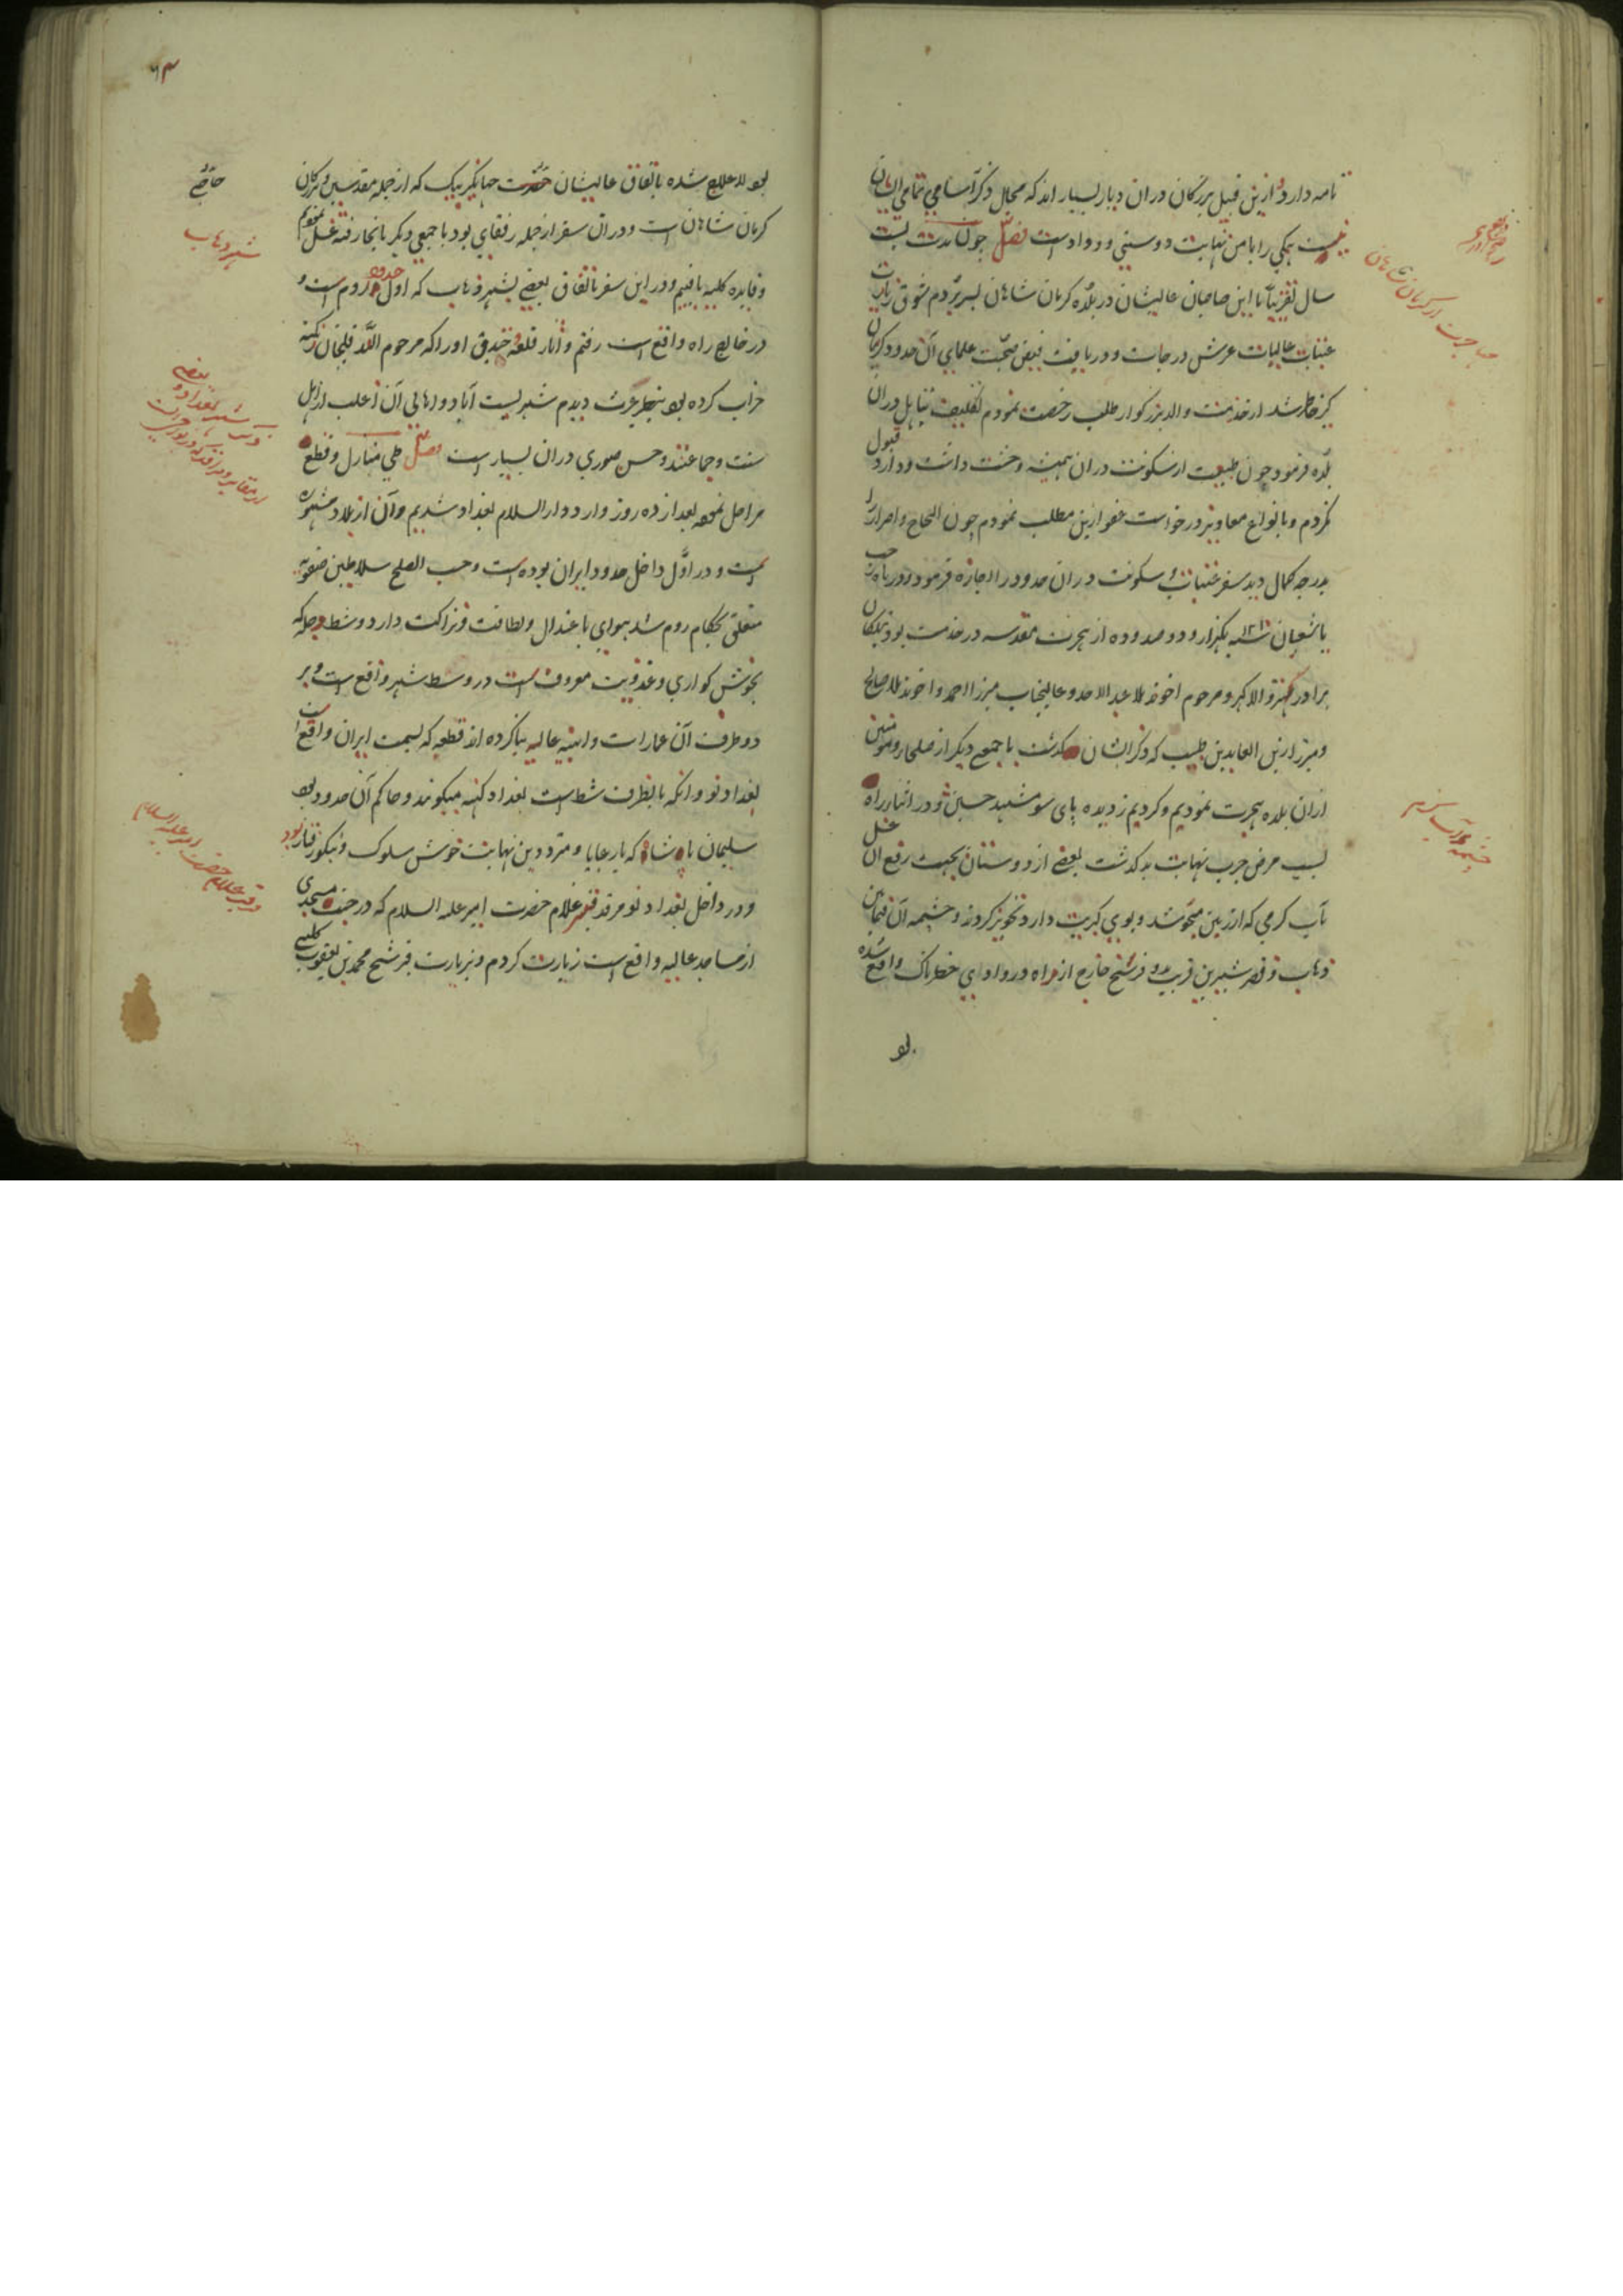 نامه دارد و ازین قبیل بزرگان دران دیار بسیار اند که مجال ذکر اسامی تمامی ایشان
نیست همکی را با من نهایت دوستی و وداد است فصل چون مدت بیست
سال تقریبا با این صاحبان عالیشان در بلده کرمان شاهان بسر بردم شوق زیارت
عتبات عالیات عرش درجات و دریافت فیض صحبت علمای آن حدود کریبان
کیر خاطر شد از خدمت والد بزرگوار طلب رخصت نمودم تکلیف تاهل دران
بلده فرمود چون طبیعت از سکونت دران همیشه وحشت داشت و دارد قبول
نکردم و بانواع معاذیر درخواست عفو ازین مطلب نمودم چون الحاح و اصرار را
بدرجه کمال دید سفر عتبات و سکونت دران حدود را اجازه فرمود و در
شعبان سنه ۱۲۱۰ یکهزار و دو صد و ده از هجرت مقدسه در خدمت
برادر والا کهر و مرحوم اخوند ملا عبد الاحد و عالیجناب میرزا احمد و اخوند ملا صالح
و میرزا زین العابدین طبیب که ذکر ایشان گذشت با جمعی دیگر از صلحا و مومنین
ازان بلده هجرت نمودیم و کردیم ز دیده پای سو مشهد حسین و در اثنای راه
بسبب مرض جرب نهایت بد گذشت بعضی از دوستان بجهت رفع آن غسل
بآب گرمی که از زمین میجوشد و بوی کبریت دارد تجویز کردند و چشمه آن فیمابین
ذهاب و قصر شیرین قریب بدو فرسخ خارج از راه در وادی خطرناک واقع شده
بو
مهاجرت از کرمان شاهان
چشمه آب گرم
۶۳
بود لا علاج شده باتفاق عالیشان جهانگیر بیک که از جمله مقدسین و بزرگان
کرمان شاهان است و دران سفر از جمله رفقای بود با جمعی دیگر بانجا رفته غسل نمودم
و فایده کلیه یافتیم و در این سفر باتفاق بعضی بشهر ذهاب که اول حدود روم است و
در خارج راه واقع است رفتم و آثار قلعه و خندق او را که مرحوم الله قلیخان زنکنه
خراب کرده بود بنظر عبرت دیدم شهریست آباد و اهالی آن اغلب از اهل
سنت و جماعتند و حسن صوری دران بسیار است فصل طی منازل و قطع
مراحل نموده بعد از ده روز وارد دار السلام بغداد شدیم و آن از بلاد مشهوره
است و در اول داخل حدود ایران بوده است و حسب الصلح سلاطین صفویه
متعلق بحکام روم شد هوای باعتدال و لطافت و نزاکت دارد و شط دجله که
بخوش گواری و عذوبت معروف است در وسط شهر واقع است و بر
دو طرف آن عمارات و ابنیه عالیه بنا کرده اند قطعه که بسمت ایران واقع است
بغداد نو و انکه بانطرف شط است بغداد کهنه میگویند و حاکم آن حدود بود
سلیمان پادشاه که با رعایا و مترددین نهایت خوش سلوک و نیکو رفتار بود
و در داخل بغداد نو مرقد قنبر غلام حضرت امیر علیه السلام که در جنب مسجدی
از مساجد عالیه واقع است زیارت کردم و بزیارت قبر شیخ محمد بن یعقوب کلینی
شهر ذهاب
ذکر شهر بغداد و بعضی
مرقد قنبر غلام حضرت امیر علیه السلام